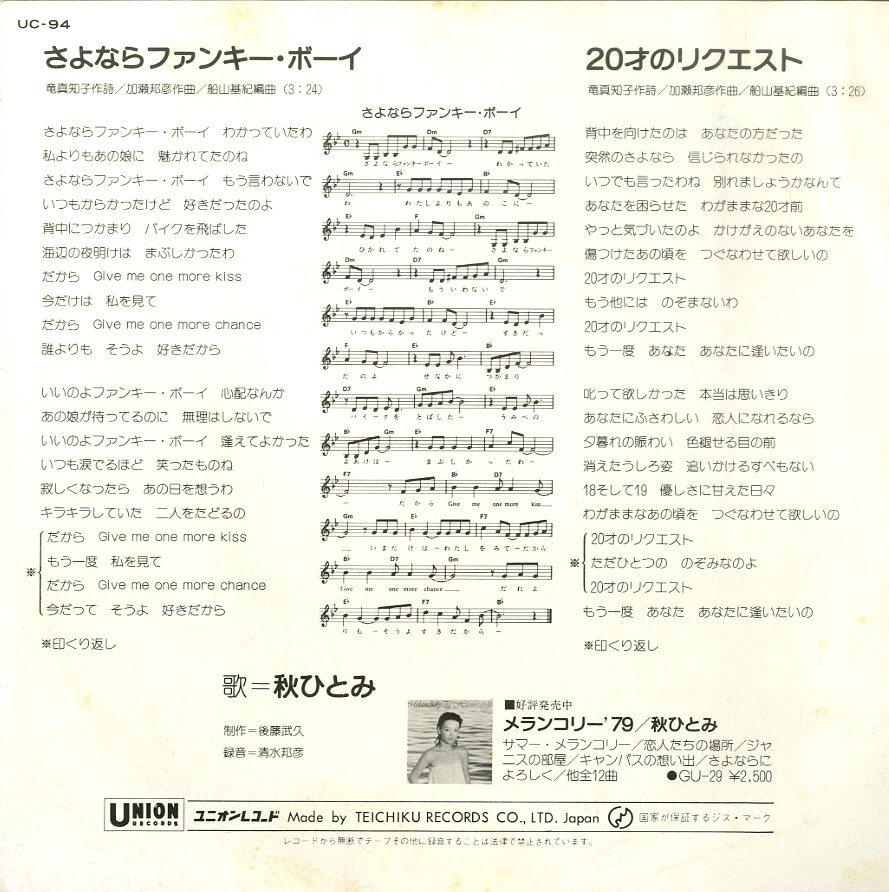 UC-94
さよならファンキー・ボーイ
竜真知子作詩／加瀬邦彦作曲／船山基紀編曲（3：24）
さよならファンキー・ボーイ　わかっていたわ
私よりもあの娘に　魅かれてたのね
さよならファンキー・ボーイ　もう言わないで
いつもからかったけど　好きだったのよ
背中につかまり　バイクを飛ばした
海辺の夜明けは　まぶしかったわ
だから　Give me one more kiss
今だけは　私を見て
だから　Give me one more chance
誰よりも　そうよ　好きだから
いいのよファンキー・ボーイ　心配なんか
あの娘が待ってるのに　無理はしないで
いいのよファンキー・ボーイ　逢えてよかった
いつも涙でるほど　笑ったものね
寂しくなったら　あの日を想うわ
キラキラしていた　二人をたどるの
だから　Give me one more kiss
もう一度　私を見て
※
だから　Give me one more chance
今だって　そうよ　好きだから
※印くり返し
さよならファンキー・ボーイ
Gm Dm D7
さよならファンキーボーイー わかっていた
Gm E♭ B♭
わ わたしよりもあのこにー
E♭ F Gm
ひかれてたのねー さよならファンキー
Dm D7 Gm
ボーイー もういわないで
E♭ B♭ E♭
いつもからかったけどー すきだっ
F E♭ B♭
たのよ せなかに つかまり
D7 Gm E♭
バイクをとばしたー うみべの
B♭ E♭ F7
よあけはー まぶしかったわー
F7 B♭ D7
ー だから Give me one more kiss
Gm E♭ F7
いまだけはーわたしをみてーだから
B♭ D7 Gm
Give me one more chance だれよ
E♭ F7 B♭
りもーそうよすきだからー
20才のリクエスト
竜真知子作詩／加瀬邦彦作曲／船山基紀編曲（3：26）
背中を向けたのは　あなたの方だった
突然のさよなら　信じられなかったの
いつでも言ったわね　別れましょうかなんて
あなたを困らせた　わがままな20才前
やっと気づいたのよ　かけがえのないあなたを
傷つけたあの頃を　つぐなわせて欲しいの
20才のリクエスト
もう他には　のぞまないわ
20才のリクエスト
もう一度　あなた　あなたに逢いたいの
叱って欲しかった　本当は思いきり
あなたにふさわしい　恋人になれるなら
夕暮れの賑わい　色褪せる目の前
消えたうしろ姿　追いかけるすべもない
18そして19　優しさに甘えた日々
わがままなあの頃を　つぐなわせて欲しいの
20才のリクエスト
※ ただひとつの　のぞみなのよ
20才のリクエスト
もう一度　あなた　あなたに逢いたいの
※印くり返し
歌＝秋ひとみ
制作＝後藤武久
録音＝清水邦彦
■好評発売中
メランコリー'79／秋ひとみ
サマー・メランコリー／恋人たちの場所／ジャ
ニスの部屋／キャンパスの想い出／さよならに
よろしく／他全12曲　●GU-29 ¥2,500
UNION
RECORDS
ユニオンレコード Made by TEICHIKU RECORDS CO., LTD. Japan 国家が保証するジス・マーク
レコードから無断でテープその他に録音することは法律で禁止されています。